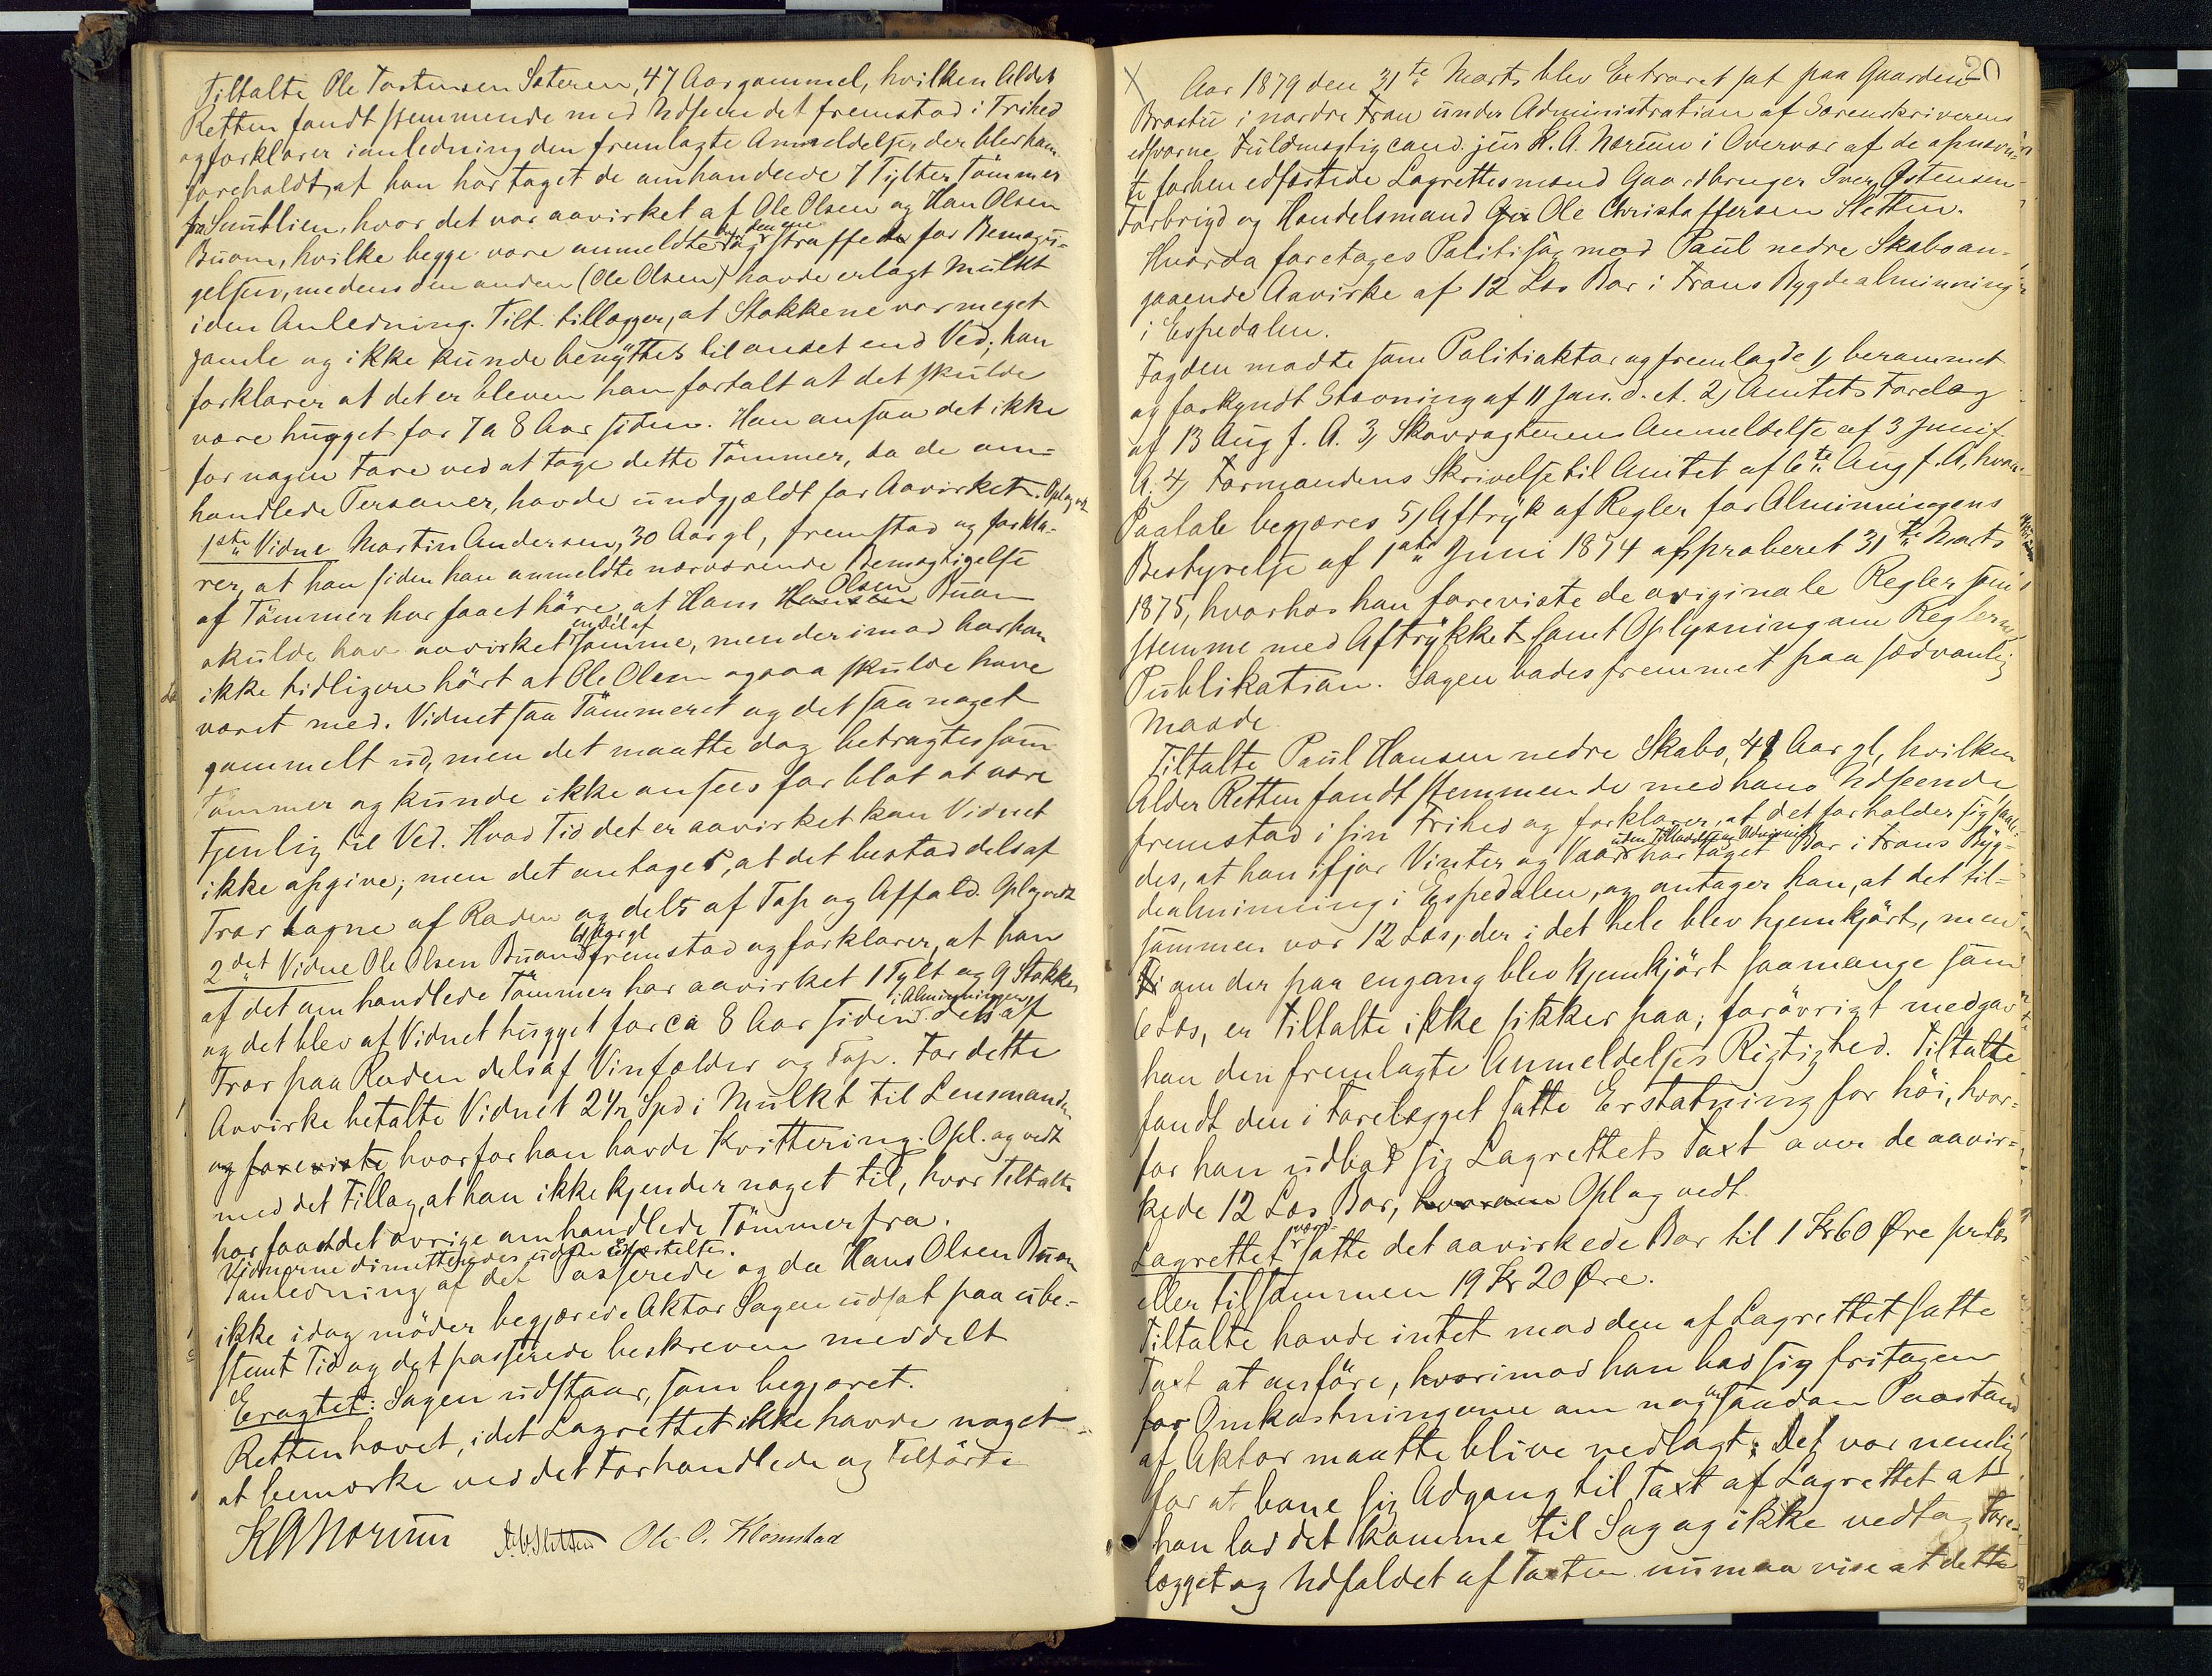 Tiltalte Ole Tostensen Sæteren, 47 Aar gammel, hvilken Alder
Retten fandt stemmende med Udseendet fremstod i Frihed
og forklarer i anledning den fremlagte Anmeldelse, der blev ham
foreholdt, at han har taget de omhandlede 7 Tylter Tömmer
fra Smutlien, hvor det var aavirket af Ole Olsen og Han Olsen
Buom, hvilke begge vare anmeldte og den ene straffet for Bemægti-
gelsen, medens den anden (Ole Olsen) havde erlagt Mulkt
i den Anledning. Tilt. tillægger, at Stokkene var meget
gamle og ikke kunde benyttes til andet end Ved; han
forklarer at det er bleven ham fortalt at det skulde
være hugget for 7 a 8 Aar siden. Han ansaa det ikke
for nogen Fare ved at tage dette Tömmer, da de om-
handlede Personer, havde undgjældt for Aavirket. Opl og vedt
1ste Vidne Martin Andersen, 30 Aar gl, fremstod og forkla-
rer, at han siden han anmeldte nærværende Bemægtigelse
af Tömmer har faaet höre, at Hans Hansen Olsen Buom
skulde have aavirket en Del af samme, men derimod har han
ikke tidligere hört at Ole Olsen ogsaa skulde have
været med. Vidnet saa Tömmeret og det saa noget
gammelt ud, men det maatte dog betragtes som
Tömmer og kunde ikke ansees for blot at være
tjenlig til Ved. Hvad Tid det er aavirket kan Vidnet
ikke opgive; men det antages, at det bestod dels af
Trær tagne af Roden og dels af Top og Affald. Opl og vedt
2det Vidne Ole Olsen Buom 61 Aar gl fremstod og forklarer, at han
af det omhandlede Tömmer har aavirket 1 Tylt og 9 Stokker
og det blev af Vidnet hugget for ca 8 Aar siden i Alminningen dels af
Trær paa Roden dels af Vinfælder og Top. For dette
Aavirke betalte Vidnet 2 1/2 Spd i Mulkt til Lensmanden
og foreviste hvorfor han havde Kvittering. Opl. og vedt
med det Tillæg, at han ikke kjender noget til, hvor Tiltalte
har faaet det övrige omhandlede Tömmer fra.
Vidnerne dimitteredes
I anledning af det Passerede og da Hans Olsen Buom
ikke idag möder begjærede Aktor Sagen udsat paa ube-
stemt Tid og det passerede beskreven meddelt
Eragtet: Sagen udstaar, som begjæret.
Retten hævet, idet Lagrettet ikke havde noget
at bemærke ved det Forhandlede og Tilförte
KANorum O.C.Sletten Ole O. Klomstad
20
X Aar 1879 den 31te Marts blev Extraret sat paa Gaarden
Brostu i nordre Fron under Administration af Sorenskriverens
edsvorne Fuldmægtig cand. jur K. A. Norum i Overvær af de opnævn-
te forhen edfæstede Lagrettesmænd Gaardbruger Iver Østensen
Forbrigd og Handelsmand Ole Christoffersen Sletten.
Hvorda foretoges Politisag mod Paul nedre Skabo an-
gaaende Aavirke af 12 Læs Bar i Frons Bygdealminning
i Espedalen.
Fogden mødte som Politiaktor og fremlagde 1, berammet
og forkyndt Stævning af 11 Jan. d. A. 2, Amtets Forelæg
af 13 Aug f. A. 3, Skovvogterens Anmeldelse af 3 Juni f.
A. 4, Formandens Skrivelse til Amtet af 6te Aug f. A, hvori
Paatale begjæres 5, Aftryk af Regler for Alminningens
Bestyrelse af 1ste Juni 1874 approberet 31te Marts
1875, hvorhos han foreviste de originale Regler som
stemme med Aftrykket samt Oplysning om Reglernes
Publikation. Sagen bades fremmet paa sædvanlig
Maade.
Tiltalte Paul Hansen nedre Skabo, 48 Aar gl, hvilken
Alder Retten fandt stemmende med hans Udseende
fremstod i sin Frihed og forklarer, at det forholder sig saale-
des, at han ifjor Vinter og Vaar uden Tilladelse og Udvisning har taget Bar i Frons Byg-
dealminning i Espedalen, og antager han, at det til-
sammen var 12 Læs, der i det hele blev hjemkjört, men
om der paa engang blev hjemkjört saamange som
6 Læs, er Tiltalte ikke sikker paa; forövrigt medgav
han den fremlagte Anmeldelses Rigtighed. Tiltalte
fandt den i Forelægget satte Erstatning for höi, hvor-
for han udbad sig Lagrettets Taxt over de aavir-
kede 12 Læs Bar, hvorom Opl og vedt.
Lagrettet værdsatte det aavirkede Bar til 1 Kr 60 Øre pr Læs
eller tilsammen 19 Kr 20 Øre.
Tiltalte havde intet mod den af Lagrettet satte
Taxt at anföre, hvorimod han bad sig fritagen
for Omkostningerne om nogen saadan Paastand
af Aktor maatte blive nedlagt; Det var nemlig
for at bane sig Adgang til Taxt af Lagrettet at
han lod det komme til Sag og ikke vedtog Fore-
lægget og Udfaldet af Taxten nu maa vise at dette